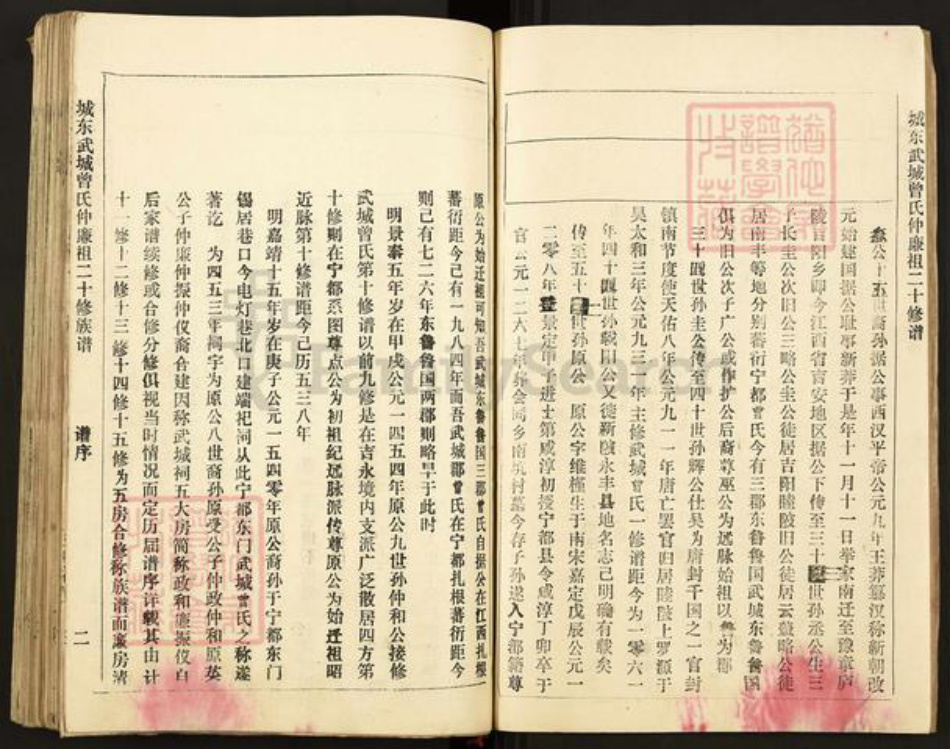 城东武城曾氏仲廉祖二十修谱
公十五世裔孙据公事西汉平帝公元九年王莽篡汉称新朝改
元始建国据公耻事新莽于是年十一月十一日举家南迁至豫章庐
陵吉阳乡即今江西省吉安地区据公下传至三十世孙丞公生三
子长圭公次旧公三略公圭公徒居吉阳睦陂旧公徒居云盖略公徒
居南丰等地分别蕃衍宁都曾氏今有三郡东鲁鲁国武城东鲁鲁国
俱为旧公次子广公或作扩公后裔尊巫公为远脉始祖以鲁为郡
三十四世孙圭公传至四十世孙辉公仕吴为唐封千国之一官封
镇南节度使天佑八年公元九一一年唐亡罢官归居睦陂上罗源于
吴太和三年公元九三一年主修武城曾氏一修谱距今为一零六一
年四十四世孙 公又徒新 永丰县地名志已明确有载矣
传至五十 世孙原公 原公字维 生于南宋嘉定戊辰公元一
二零八年登景定甲子进士第咸淳初授宁都县令咸淳丁卯卒于
官公元一二六七年葬会同乡南坑村墓今存子孙遂入宁都籍尊
原公为始迁祖可知吾武城东鲁鲁国三郡曾氏自据公在江西扎根
蕃衍距今己有一九八四年而吾武城郡曾氏在宁都扎根蕃衍距今
则己有七二六年东鲁鲁国两郡则略早于此时
明景泰五年岁在甲戌公元一四五四年原公九世孙仲和公接修
武城曾氏第十修谱以前九修是在吉永境内支派广泛散居四方第
十修则在宁都系图尊点公为初祖纪远脉派传尊原公为始迁祖昭
近脉第十修谱距今己历五三八年
明嘉靖十五年岁在庚子公元一五四零年原公裔孙于宁都东门
锡居巷口今电灯巷北口建端祀祠从此宁都东门武城曾氏之称遂
著讫 为四五三年祠宇为原公八世裔孙原受公子仲政仲和原英
公子仲廉仲振仲仪裔合建因称武城祠五大房简称政和廉振仪自
后家谱续修或合修分修俱视当时情况而定历届谱序详载其由计
十一修十二修十三修十四修十五修为五房合修称族谱而廉房清
城东武城曾氏仲廉祖二十修族谱
谱序
二